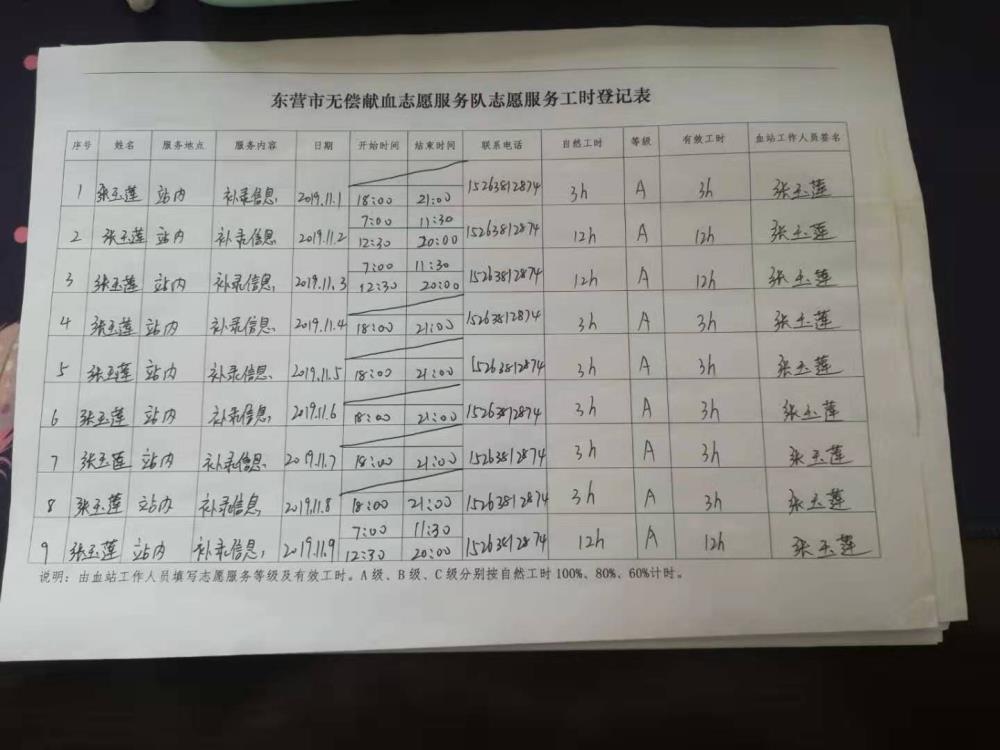 东营市无偿献血志愿服务队志愿服务工时登记表
序号 姓名 服务地点 服务内容 日期 开始时间 结束时间 联系电话 自然工时 等级 有效工时 血站工作人员签名
1 张玉莲 站内 补录信息 2019.11.1 18:00 21:00 15263812874 3h A 3h 张玉莲
7:00 11:30
2 张玉莲 站内 补录信息 2019.11.2 12:30 20:00 15263812874 12h A 12h 张玉莲
7:00 11:30
3 张玉莲 站内 补录信息 2019.11.3 12:30 20:00 15263812874 12h A 12h 张玉莲
4 张玉莲 站内 补录信息 2019.11.4 18:00 21:00 15263812874 3h A 3h 张玉莲
5 张玉莲 站内 补录信息 2019.11.5 18:00 21:00 15263812874 3h A 3h 张玉莲
6 张玉莲 站内 补录信息 2019.11.6 18:00 21:00 15263812874 3h A 3h 张玉莲
7 张玉莲 站内 补录信息 2019.11.7 18:00 21:00 15263812874 3h A 3h 张玉莲
8 张玉莲 站内 补录信息 2019.11.8 18:00 21:00 15263812874 3h A 3h 张玉莲
7:00 11:30
9 张玉莲 站内 补录信息 2019.11.9 12:30 20:00 15263812874 12h A 12h 张玉莲
说明：由血站工作人员填写志愿服务等级及有效工时。A级、B级、C级分别按自然工时100%、80%、60%计时。